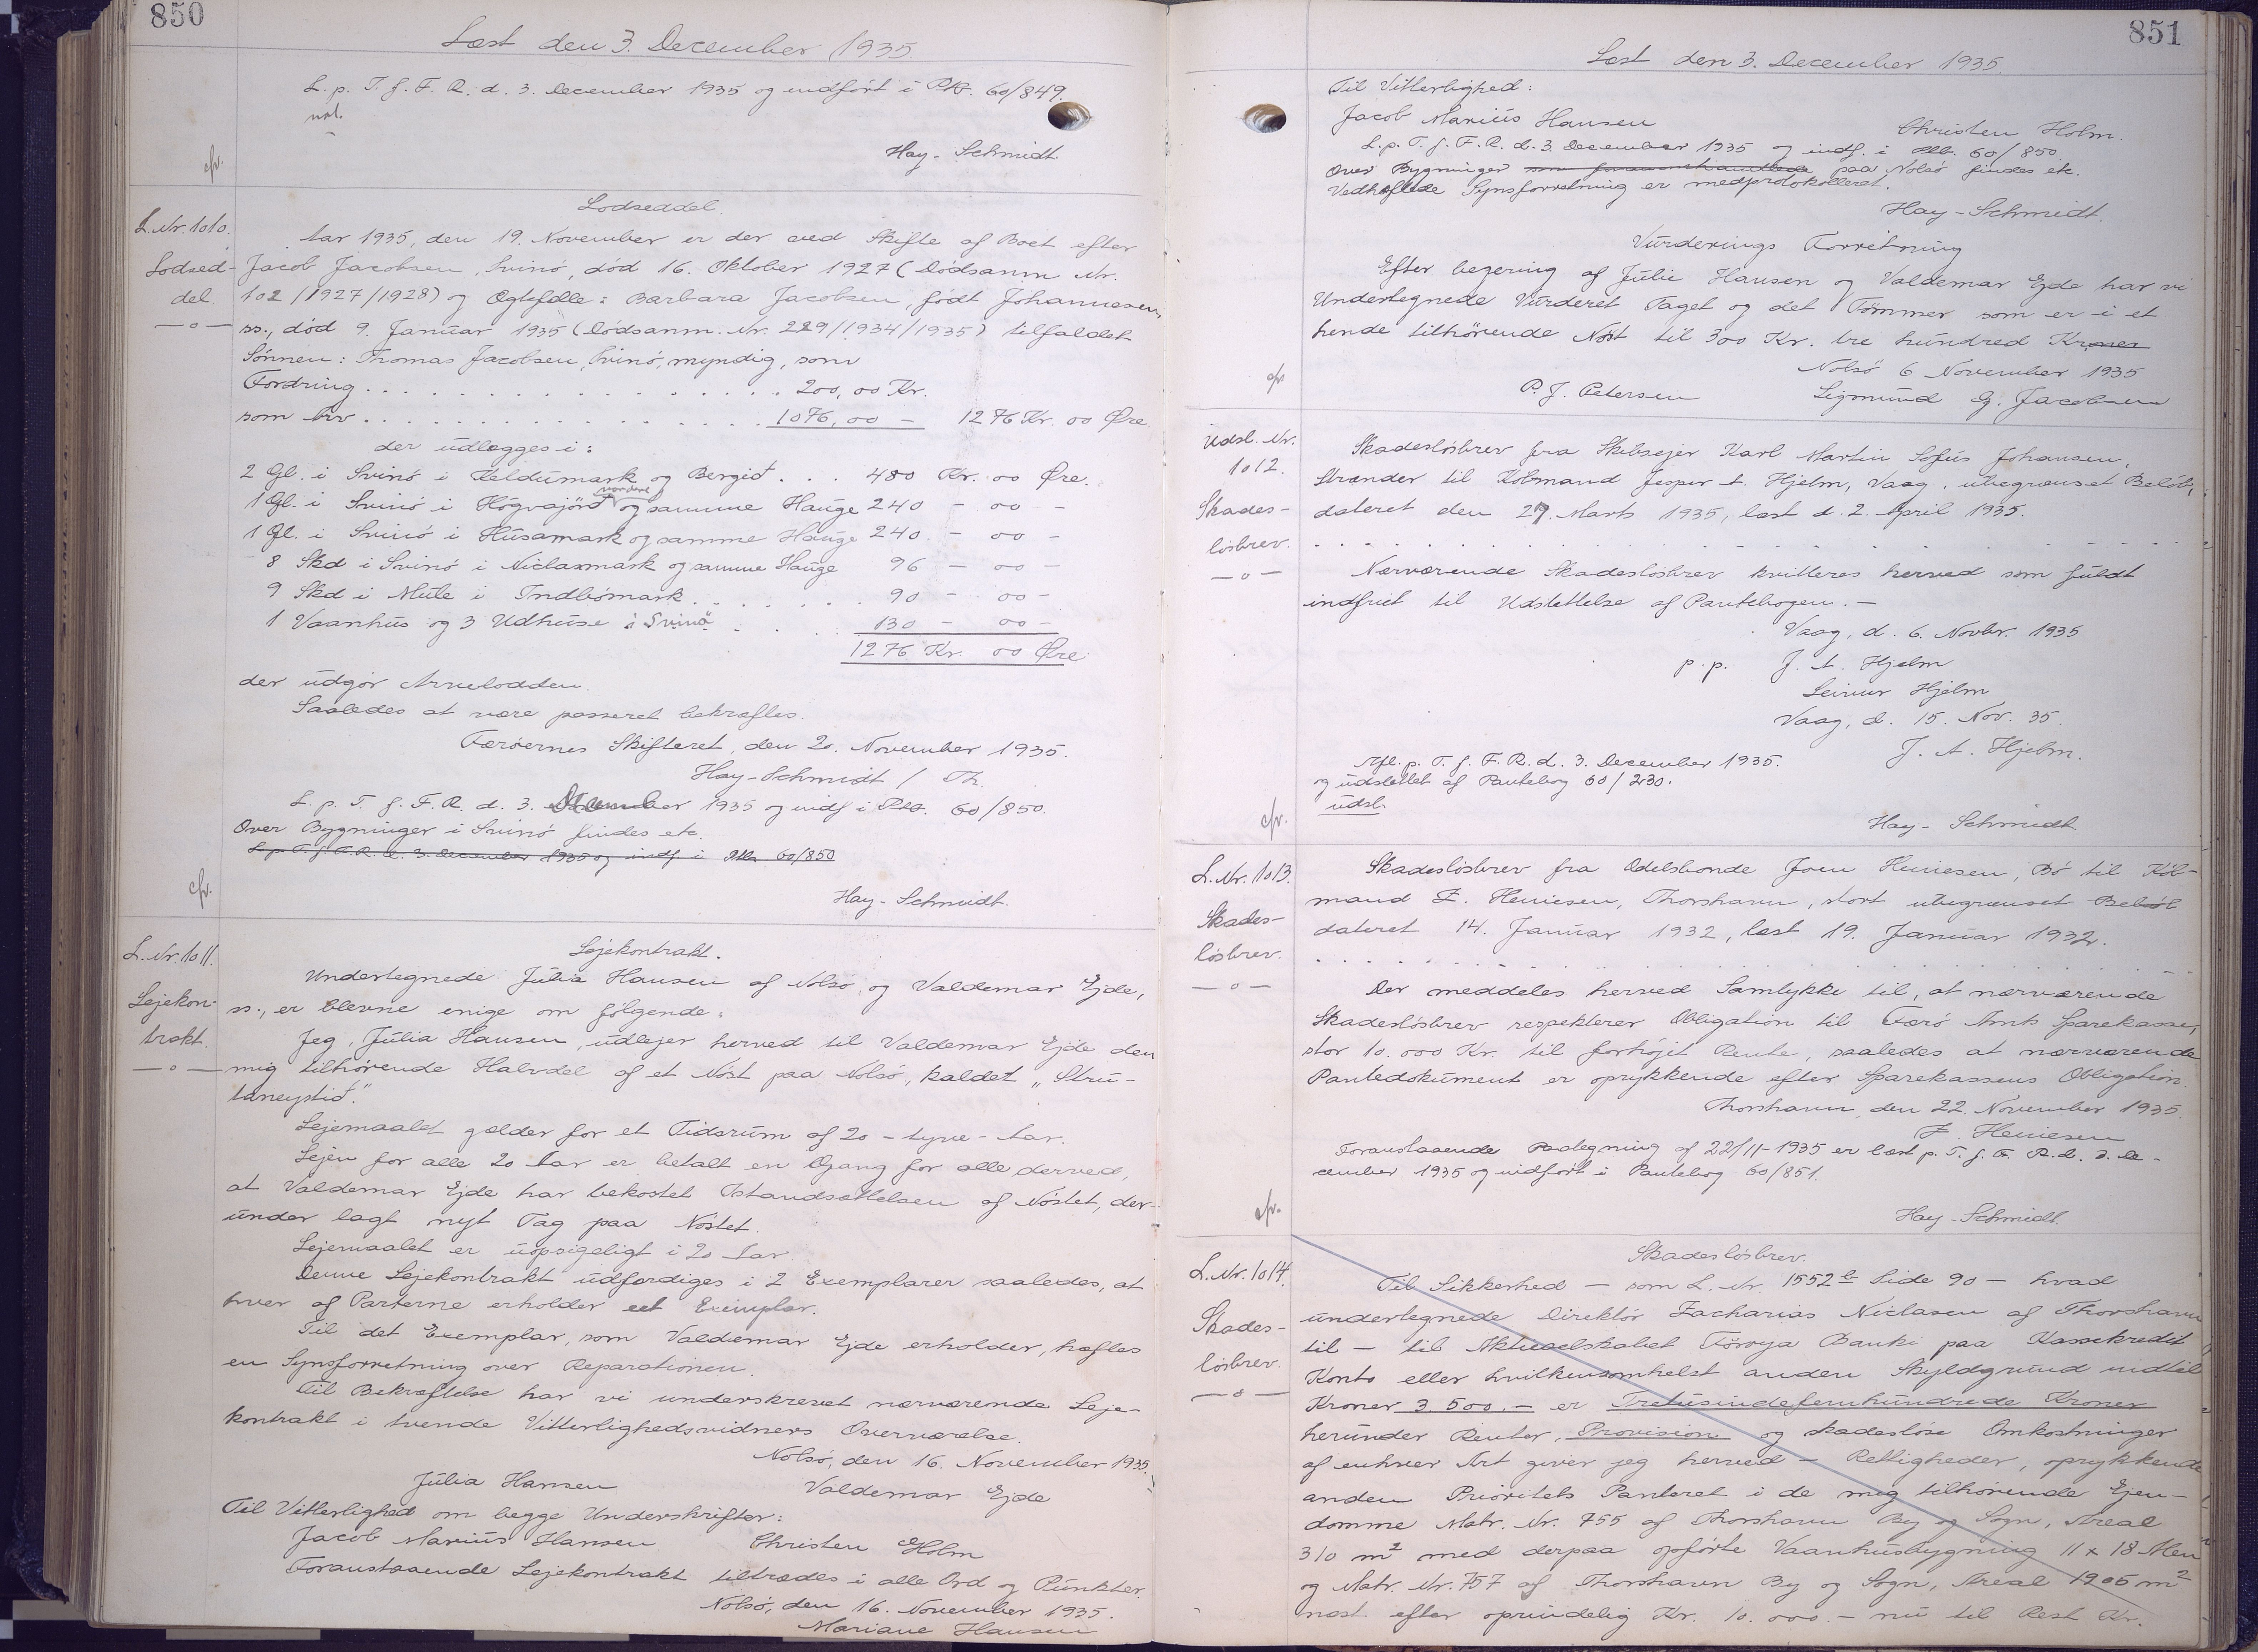 850
Læst den 3. December 1935
L. p. T. f. F. R. d. 3. December 1935 og indført i Pb. 60/849.
cfr.
Hay-Schmidt
Lodseddel.
L. Nr. 1010.
Lodsed-
del.
—o—
Aar 1935, den 19. November er der ved Skifte af Boet efter
Jacob Jacobsen, Svinö, död 16. Oktober 1927 (Dödsanm Nr.
102/1927/1928) og Ægtefælle: Barbara Jacobsen, født Johannesen,
ss., död 9. Januar 1935 (Dödsanm. Nr. 229/1934/1935) tilfaldet
Sönnen: Thomas Jacobsen, Svinö, myndig, som
Fordring . . . . . . . . . . 200,00 Kr.
som Arv . . . . . . . . . . 1076,00 — 1276 Kr. 00 Øre
der udlægges i:
2 Gl. i Svinö i Heldumark og Bergid . . . 480 Kr. 00 Øre.
1 Gl. i Svinö i Högvajörd og samme Hauge 240 — 00 —
1 Gl. i Svinö i Húsamark og samme Hauge 240 — 00 —
8 Skd i Svinö i Niclasmark og samme Hauge 96 — 00 —
9 Skd i Múle i Indbömark . . . . . . 90 — 00 —
1 Vaanhus og 3 Udhuse i Svinö . . . . 130 — 00 —
1276 Kr. 00 Øre
der udgör Arvelodden.
Saaledes at være passeret bekræftes.
Færöernes Skifteret, den 20. November 1935.
Hay-Schmidt / Th.
L. p. T. f. F. R. d. 3. December 1935 og indf i Pb. 60/850.
Over Bygninger i Svinö findes etc.
L. p. T. f. F. R. d. 3. December 1935 og indf. i Pb. 60/850
cfr.
Hay-Schmidt.
L. Nr. 1011.
Lejekon-
trakt.
—o—
Lejekontrakt.
Undertegnede Júlia Hansen af Nolsö, og Valdemar Ejde,
ss., er blevne enige om fölgende:
Jeg, Júlia Hansen, udlejer herved til Valdemar Ejde den
mig tilhörende Halvdel af et Nöst paa Nolsö, kaldet „Stru-
taneystid."
Lejemaalet gælder for et Tidsrum af 20 - tyve - Aar.
Lejen for alle 20 Aar er betalt en Gang for alle derved,
at Valdemar Ejde har bekostet Istandsættelsen af Nöstet, der-
under lagt nyt Tag paa Nöstet.
Lejemaalet er uopsigeligt i 20 Aar.
Denne Lejekontrakt udfærdiges i 2 Exemplarer saaledes, at
hver af Parterne erholder eet Exemplar.
Til det Exemplar, som Valdemar Ejde erholder, hæftes
en Synsforretning over Reparationen.
Til Bekræftelse har vi underskrevet nærværende Leje-
kontrakt i tvende Vitterlighedsvidners Overværelse.
Nolsö, den 16. November 1935.
Júlia Hansen Valdemar Ejde
Til Vitterlighed om begge Underskrifter:
Jacob Marius Hansen Christen Holm
Foranstaaende Lejekontrakt tiltrædes i alle Ord og Punkter.
Nolsö, den 16. November 1935.
Mariane Hansen
851
Læst den 3. December 1935.
Til Vitterlighed:
Jacob Marius Hansen Christen Holm.
L. p. T. f. F. R. d. 3. December 1935 og indf. i Pb. 60/850.
Over Bygninger paa Nolsö findes etc.
Vedhæftede Synsforretning er medprotokolleret.
Hay-Schmidt.
Vurderings Forretning
Efter begering af Júlie Hansen og Valdemar Ejde har vi
Undertegnede Vurderet Taget og det Tömmer som er i et
hende tilhörende Nöst til 300 Kr. tre hundred Kroner
Nolsö 6 November 1935
cfr
P. J. Petersen Sigmund G. Jacobsen
Udsl. Nr.
1012.
Skades-
lösbrev.
—o—
Skadeslösbrev fra Skibsejer Karl Martin Sofus Johansen,
Strænder til Köbmand Jesper A. Hjelm, Vaag, ubegrænset Belöb,
dateret den 27. Marts 1935, læst d. 2. April 1935.
Nærværende Skadeslösbrev kvitteres herved som fuldt
indfriet til Udslettelse af Pantebogen. —
Vaag, d. 6. Novbr. 1935
p.p. J. A. Hjelm
Leivur Hjelm
Vaag, d. 15. Nov. 35.
J. A. Hjelm.
Afl. p. T. f. F. R. d. 3. December 1935.
og udslettet af Pantebog 60/230.
udsl.
cfr.
Hay-Schmidt
L. Nr. 1013.
Skades-
lösbrev.
—o—
Skadeslösbrev fra Odelsbonde Joen Heniesen, Bö til Köb-
mand Z. Heniesen, Thorshavn, stort ubegrænset Belöb
dateret 14. Januar 1932, læst 19. Januar 1932.
Der meddeles herved Samtykke til, at nærværende
Skadeslösbrev respekterer Obligation til Færö Amts Sparekasse,
stor 10.000 Kr. til forhöjet Rente, saaledes at nærværende
Pantedokument er oprykkende efter Sparekassens Obligation.
Thorshavn, den 22. November 1935.
Z. Heniesen
Foranstaaende Paategning af 22/11-1935 er læst p. T. f. F. R. d. 3. De-
cember 1935 og indfört i Pantebog 60/851.
cfr.
Hay-Schmidt.
L. Nr. 1014.
Skades-
lösbrev.
—o—
Skadeslösbrev.
Til Sikkerhed — som L. Nr. 1552 Side 90 — hvad
undertegnede Direktör Zacharias Niclasen af Thorshavn
til — til Aktieselskabet Föroya Banki paa Kassekredit
Konto eller hvilkensomhelst anden Skyldgrund indtil
Kroner 3.500.— er Tretusindefemhundrede Kroner
herunder Renter, Provision og skadeslöse Omkostninger
af enhver Art giver jeg herved — Rettigheder, oprykkende
anden Prioritets Panteret i de mig tilhörende Ejen-
domme Matr. Nr. 755 af Thorshavn By og Sogn, Areal
310 m² med derpaa opförte Vaanhusbygning 11 x 18 Alen
og Matr. Nr. 757 af Thorshavn By og Sogn, Areal 1905 m²
næst efter oprindelig Kr. 10.000.— nu til Rest Kr.